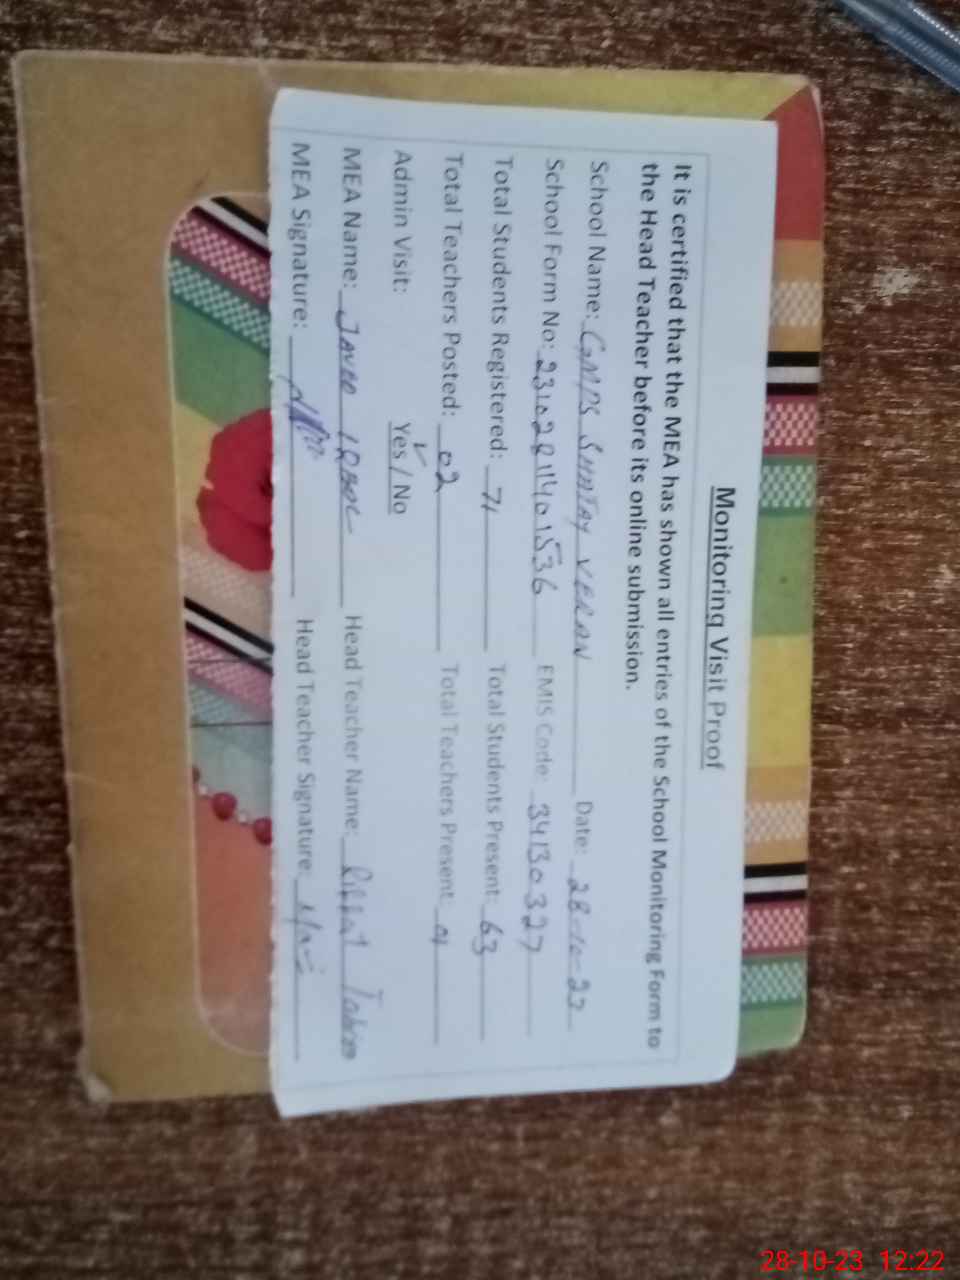 Monitoring Visit Proof
It is certified that the MEA has shown all entries of the School Monitoring Form to
the Head Teacher before its online submission.
School Name: GMPS SHNTAY VERAN Date: 28-10-23
School Form No: 23102811401536 EMIS Code: 34130327
Total Students Registered: 71 Total Students Present: 63
Total Teachers Posted: 02 Total Teachers Present: 01
Admin Visit: Yes / No
MEA Name: JAVED IQBAL Head Teacher Name: Riffat
MEA Signature: Head Teacher Signature:
28-10-23 12:22